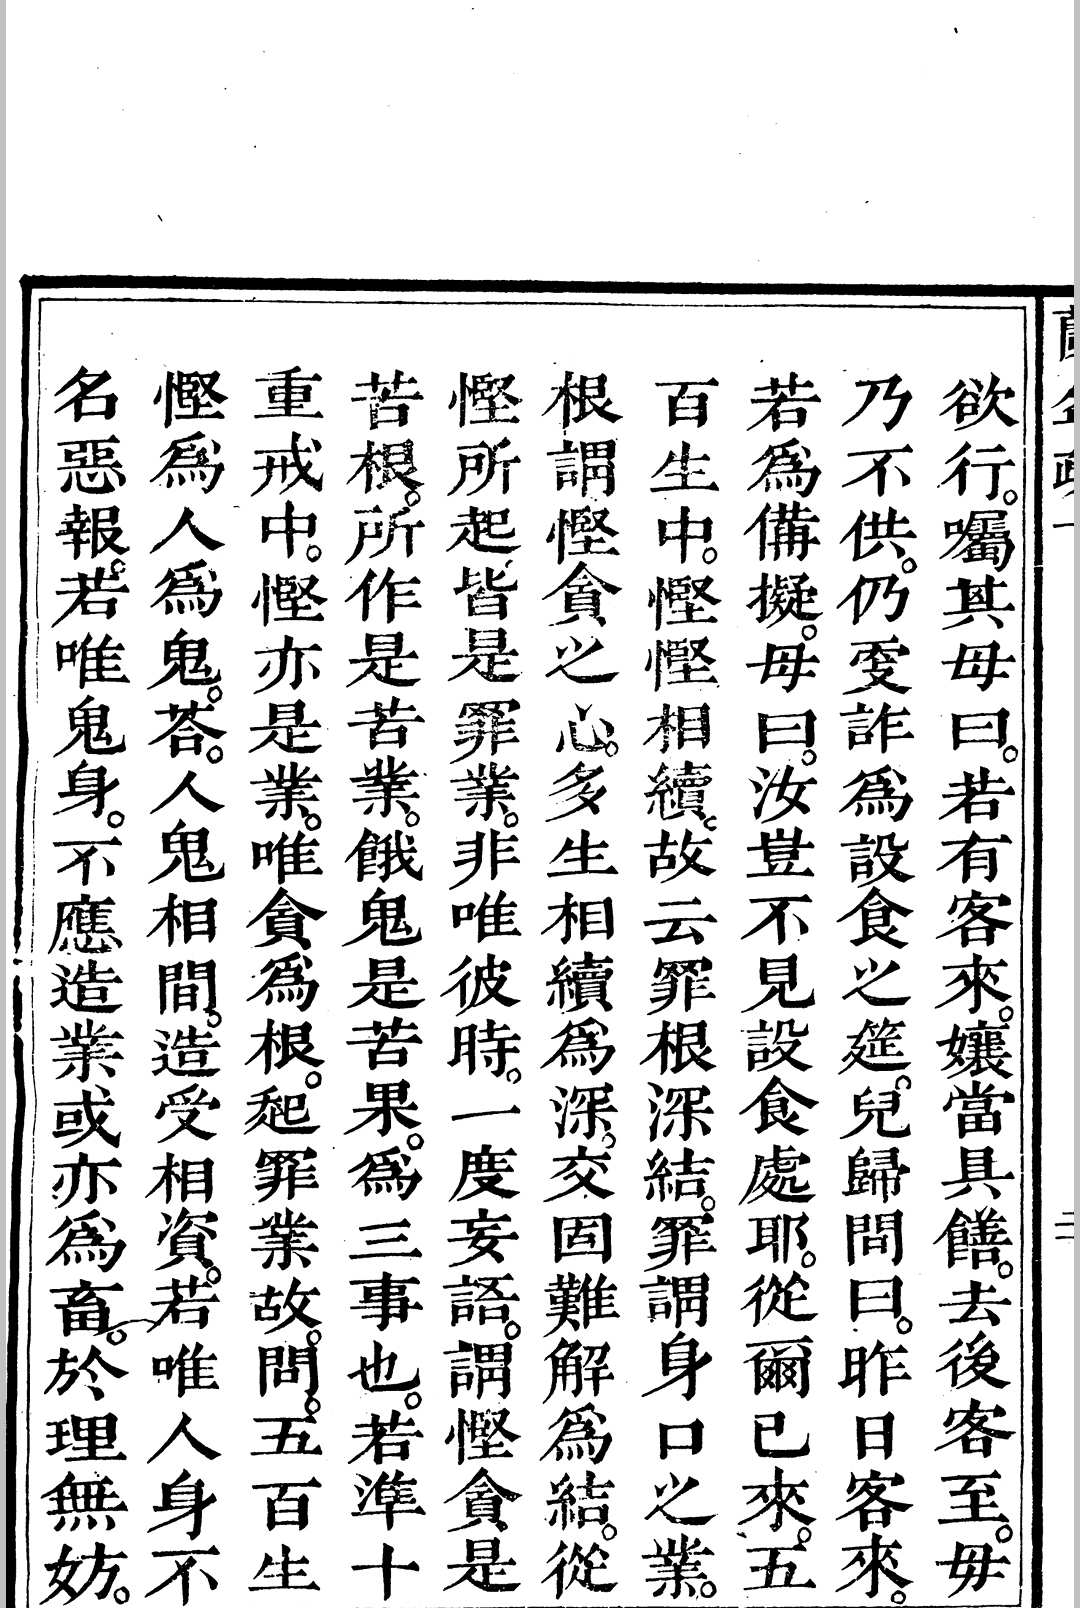 欲行。囑其母曰。若有客來。孃當具饍。去後客至。毋
乃不供。仍𢖍詐爲設食之筵。兒歸問曰。昨日客來。
若爲備擬。母曰。汝豈不見設食處耶。從爾已來。五
百生中。慳慳相續。故云罪根深結。罪謂身口之業。
根謂慳貪之心。多生相續爲深。交固難解爲結。從
慳所起皆是罪業。非唯彼時。一度妄語。謂慳貪是
苦根。所作是苦業。餓鬼是苦果。爲三事也。若準十
重戒中。慳亦是業。唯貪爲根。起罪業故。問。五百生
慳爲人爲鬼。荅。人鬼相間。造受相資。若唯人身不
名惡報。若唯鬼身。不應造業或亦爲畜。於理無妨。